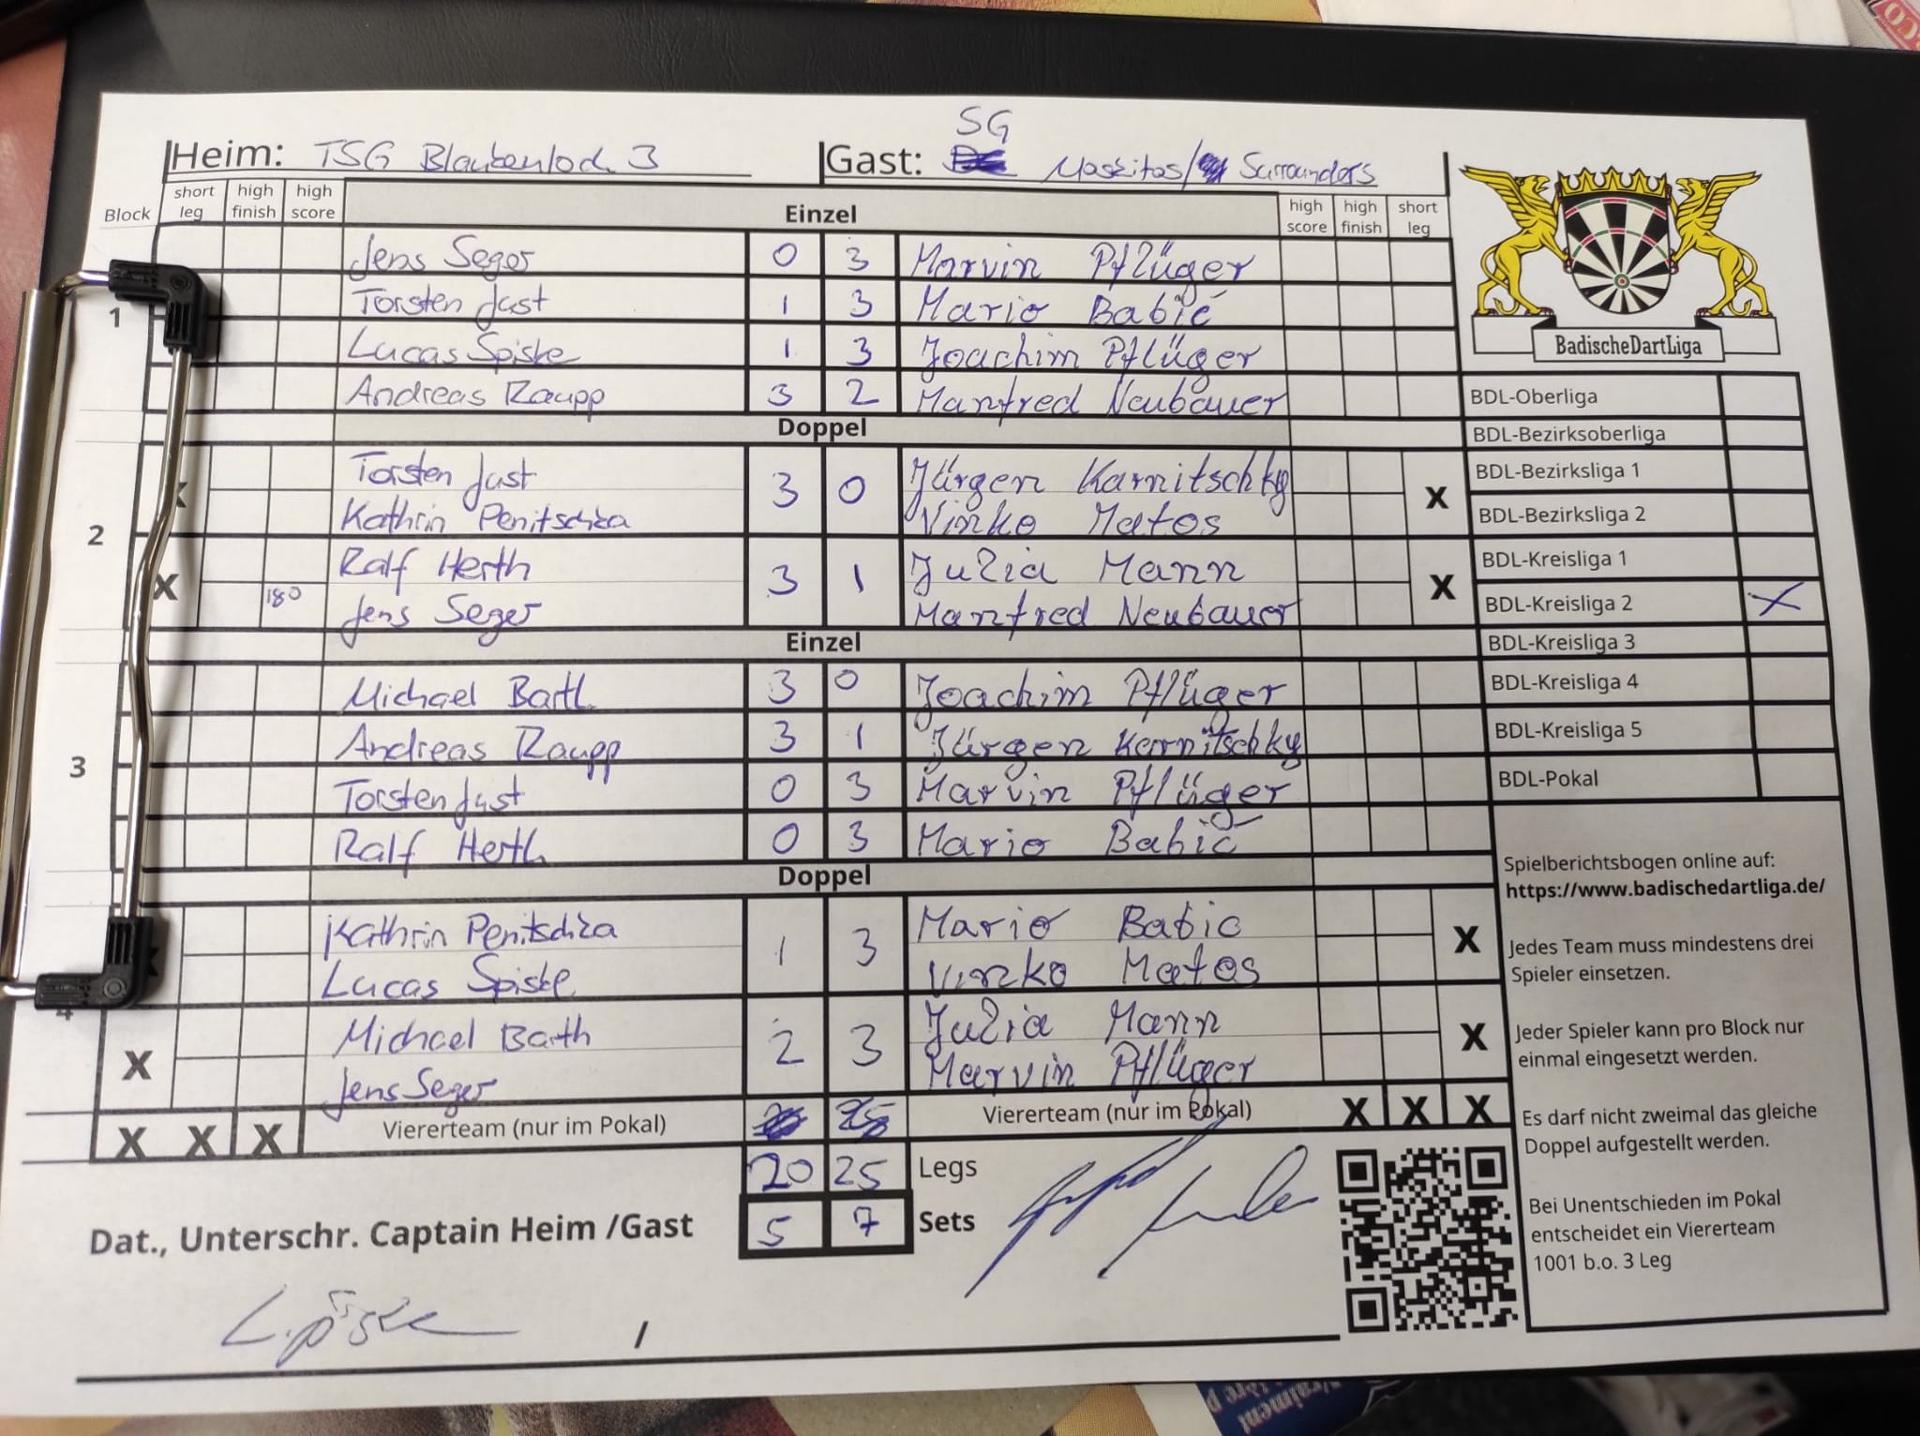 SG
Heim: TSG Blankenloch 3 Gast: Moskitos/ Surrounders
Block short leg high finish high score Einzel high score high finish short leg
Jens Seger 0 3 Marvin Pflüger
1 Torsten Just 1 3 Mario Babić
Lucas Spiske 1 3 Joachim Pflüger
Andreas Raupp 3 2 Manfred Neubauer
Doppel
2
X Torsten Just 3 0 Jürgen Karnitschky X
Kathrin Penitschka Vinko Matos
X Ralf Herth 3 1 Julia Mann X
180 Jens Seger Manfred Neubauer
Einzel
3
Michael Barth 3 0 Joachim Pflüger
Andreas Raupp 3 1 Jürgen Karnitschky
Torsten Just 0 3 Marvin Pflüger
Ralf Herth 0 3 Mario Babić
Doppel
4
X Kathrin Penitschka 1 3 Mario Babic X
Lucas Spiske Vinko Matos
X Michael Barth 2 3 Julia Mann X
Jens Seger Marvin Pflüger
X X X Vierterteam (nur im Pokal) 25 Vierterteam (nur im Pokal) X X X
20 25 Legs
5 7 Sets
Dat., Unterschr. Captain Heim /Gast
/
BadischeDartLiga
BDL-Oberliga
BDL-Bezirksoberliga
BDL-Bezirksliga 1
BDL-Bezirksliga 2
BDL-Kreisliga 1
BDL-Kreisliga 2 X
BDL-Kreisliga 3
BDL-Kreisliga 4
BDL-Kreisliga 5
BDL-Pokal
Spielberichtsbogen online auf:
https://www.badischedartliga.de/
Jedes Team muss mindestens drei
Spieler einsetzen.
Jeder Spieler kann pro Block nur
einmal eingesetzt werden.
Es darf nicht zweimal das gleiche
Doppel aufgestellt werden.
Bei Unentschieden im Pokal
entscheidet ein Viererteam
1001 b.o. 3 Leg